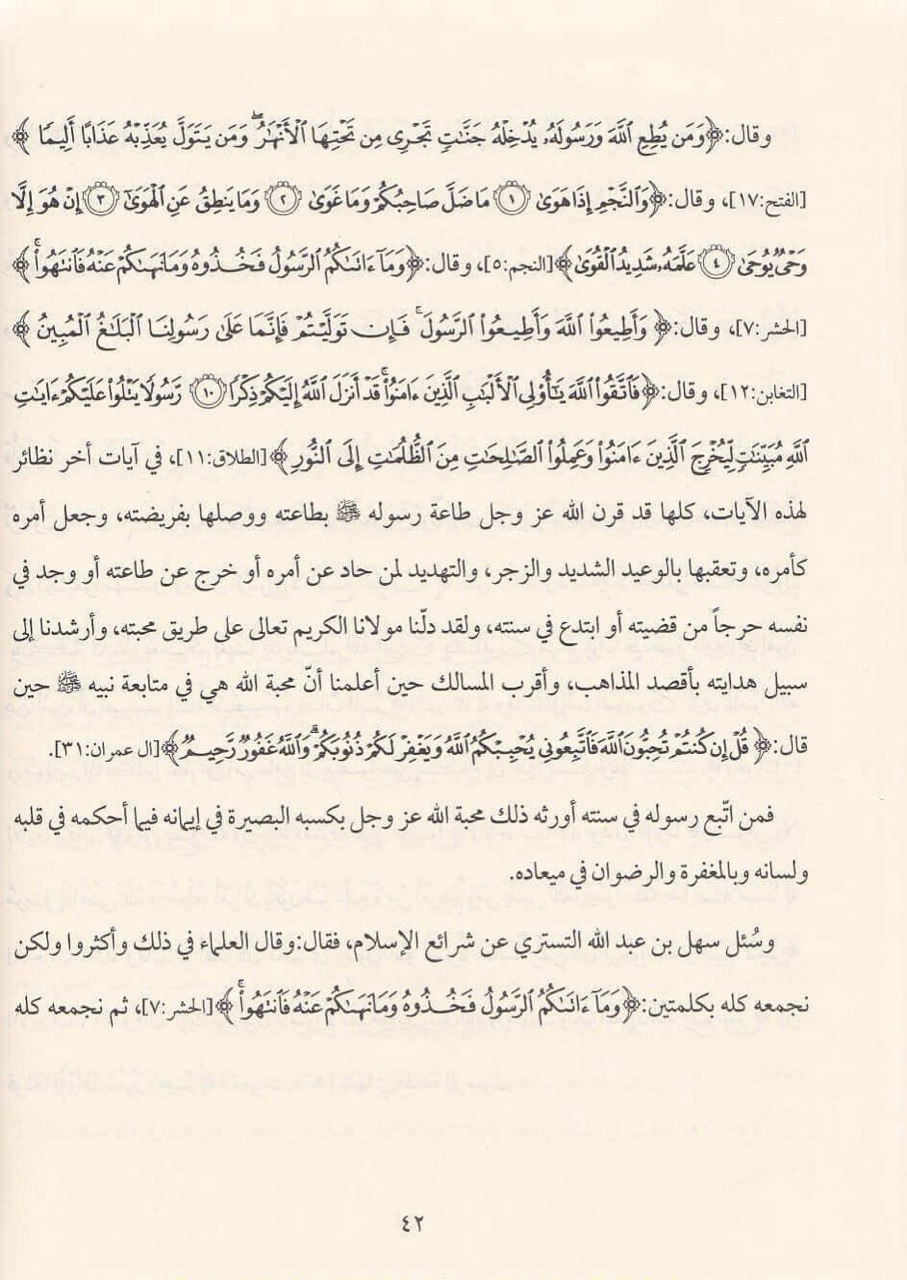 وقال: ﴿وَمَن يُطِعِ ٱللَّهَ وَرَسُولَهُۥ يُدْخِلْهُ جَنَّٰتٍ تَجْرِى مِن تَحْتِهَا ٱلْأَنْهَٰرُ ۖ وَمَن يَتَوَلَّ يُعَذِّبْهُ عَذَابًا أَلِيمًا ﴾
[الفتح:١٧]، وقال: ﴿وَٱلنَّجْمِ إِذَا هَوَىٰ ١ مَا ضَلَّ صَاحِبُكُمْ وَمَا غَوَىٰ ٢ وَمَا يَنطِقُ عَنِ ٱلْهَوَىٰٓ ٣ إِنْ هُوَ إِلَّا
وَحْىٌ يُوحَىٰ ٤ عَلَّمَهُۥ شَدِيدُ ٱلْقُوَىٰ﴾[النجم:٥]، وقال: ﴿وَمَآ ءَاتَىٰكُمُ ٱلرَّسُولُ فَخُذُوهُ وَمَا نَهَىٰكُمْ عَنْهُ فَٱنتَهُوا۟ ۚ ﴾
[الحشر:٧]، وقال: ﴿ وَأَطِيعُوا۟ ٱللَّهَ وَأَطِيعُوا۟ ٱلرَّسُولَ ۚ فَإِن تَوَلَّيْتُمْ فَإِنَّمَا عَلَىٰ رَسُولِنَا ٱلْبَلَٰغُ ٱلْمُبِينُ ﴾
[التغابن:١٢]، وقال: ﴿فَٱتَّقُوا۟ ٱللَّهَ يَٰٓأُو۟لِى ٱلْأَلْبَٰبِ ٱلَّذِينَ ءَامَنُوا۟ ۚ قَدْ أَنزَلَ ٱللَّهُ إِلَيْكُمْ ذِكْرًا ١٠ رَّسُولًا يَتْلُوا۟ عَلَيْكُمْ ءَايَٰتِ
ٱللَّهِ مُبَيِّنَٰتٍ لِّيُخْرِجَ ٱلَّذِينَ ءَامَنُوا۟ وَعَمِلُوا۟ ٱلصَّٰلِحَٰتِ مِنَ ٱلظُّلُمَٰتِ إِلَى ٱلنُّورِ ﴾[الطلاق:١١]، في آيات أخر نظائر
لهذه الآيات، كلها قد قرن الله عز وجل طاعة رسوله ﷺ بطاعته ووصلها بفريضته، وجعل أمره
كأمره، وتعقبها بالوعيد الشديد والزجر، والتهديد لمن حاد عن أمره أو خرج عن طاعته أو وجد في
نفسه حرجاً من قضيته أو ابتدع في سنته، ولقد دلّنا مولانا الكريم تعالى على طريق محبته، وأرشدنا إلى
سبيل هدايته بأقصد المذاهب، وأقرب المسالك حين أعلمنا أنّ محبة الله هي في متابعة نبيه ﷺ حين
قال: ﴿ قُلْ إِن كُنتُمْ تُحِبُّونَ ٱللَّهَ فَٱتَّبِعُونِى يُحْبِبْكُمُ ٱللَّهُ وَيَغْفِرْ لَكُمْ ذُنُوبَكُمْ ۗ وَٱللَّهُ غَفُورٌ رَّحِيمٌ ﴾[ال عمران:٣١].
فمن اتّبع رسوله في سنته أورثه ذلك محبة الله عز وجل بكسبه البصيرة في إيمانه فيما أحكمه في قلبه
ولسانه وبالمغفرة والرضوان في ميعاده.
وسُئل سهل بن عبد الله التستري عن شرائع الإسلام، فقال:وقال العلماء في ذلك وأكثروا ولكن
نجمعه كله بكلمتين: ﴿وَمَآ ءَاتَىٰكُمُ ٱلرَّسُولُ فَخُذُوهُ وَمَا نَهَىٰكُمْ عَنْهُ فَٱنتَهُوا۟ ۚ ﴾[الحشر:٧]، ثم نجمعه كله
٤٢